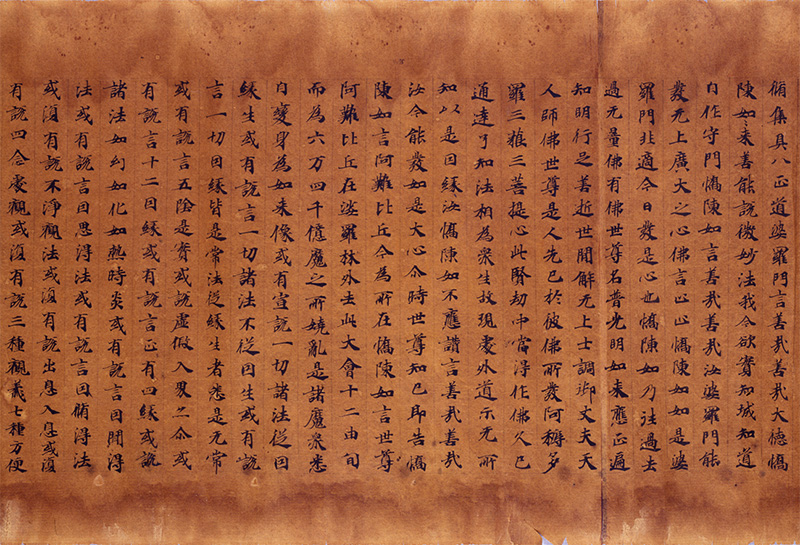 脩集具八正道婆羅門言善哉善哉大德憍
陳如〻来善能說微妙法我今欲實知城知道
自作守門憍陳如言善哉善哉汝婆羅門能
發无上廣大之心佛言止止憍陳如如是婆
羅門非適今日發是心也憍陳如乃往過去
過无量佛有佛世尊名普光明如来應正遍
知明行足善逝世間解无上士調御丈夫天
人師佛世尊是人先已於彼佛所發阿耨多
羅三藐三菩提心此賢劫中當得作佛久已
通達了知法相為衆生故現處外道示无所
知以是因緣汝憍陳如不應讚言善哉善哉
汝今能發如是大心尒時世尊知已即告憍
陳如言阿難比丘今為所在憍陳如言世尊
阿難比丘在娑羅林外去此大會十二由旬
而為六万四千億魔之所嬈亂是諸魔衆悉
自變身為如来像或有宣說一切諸法從因
緣生或有說言一切諸法不從因生或有說
言一切因緣皆是常法從緣生者悉是无常
或有說言五陰是實或說虛假入界亦尒或
有說言十二因緣或有說言正有四緣或說
諸法如幻如化如熱時炎或有說言因聞得
法或有說言因思得法或有說言因脩得法
或復有說不淨觀法或復有說出息入息或復
有說四念處觀或復有說三種觀義七種方便